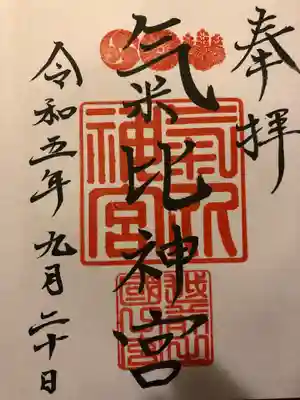 奉拝
氣比神宮
氣比神宮
越前国一之宮
令和五年九月二十日